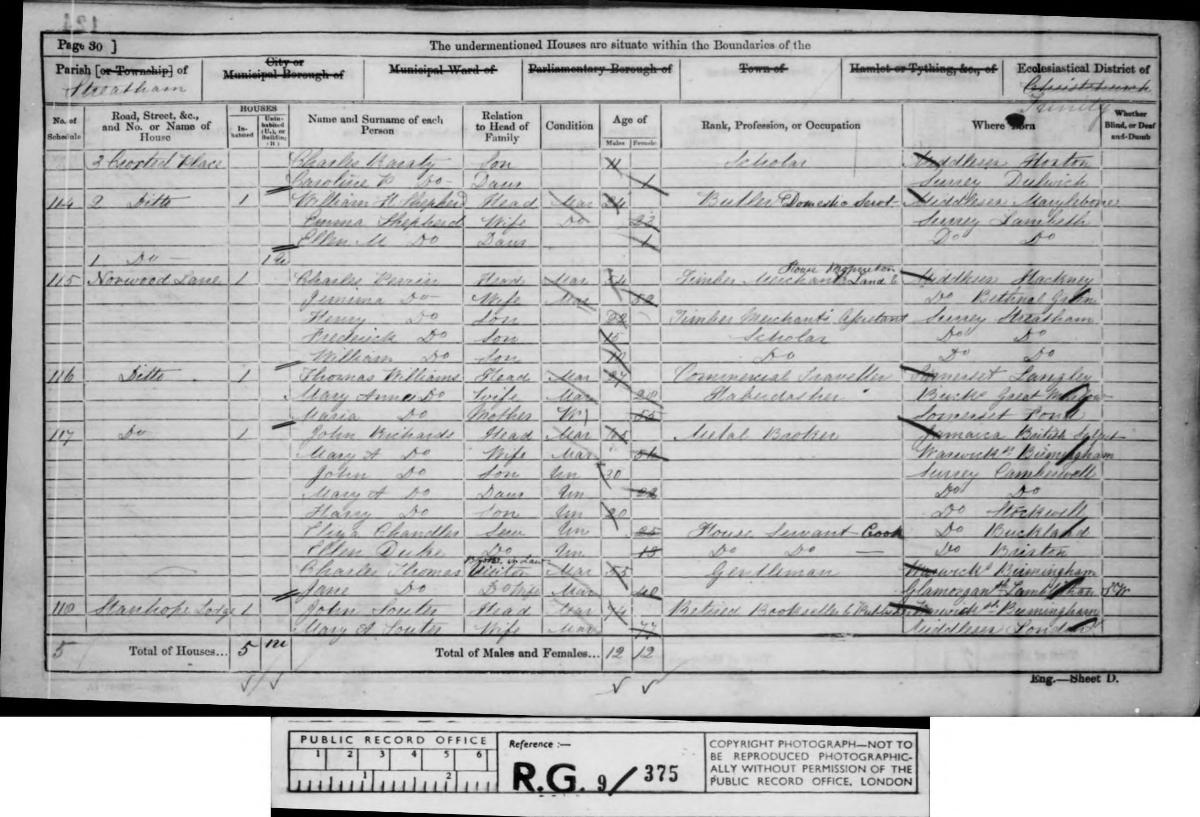 Page 30 ]
The undermentioned Houses are situate within the Boundaries of the
Parish [or Township] of
Streatham
City or
Municipal Borough of
Municipal Ward of
Parliamentary Borough of
Town of
Hamlet or Tything, &c., of
Ecclesiastical District of
Trinity
No. of Schedule
Road, Street, &c., and No. or Name of House
HOUSES
Inhabited
Uninhabited (U.), or Building (B.)
Name and Surname of each Person
Relation to Head of Family
Condition
Age of
Males
Females
Rank, Profession, or Occupation
Where Born
Whether Blind, or Deaf-and-Dumb
3 Croxted Place Charles Son 11 Scholar Middlesex
Caroline Do Daur 1 Surrey Dulwich
114 2 Ditto 1 William H Shepherd Head Mar 24 Butler Domestic Servt Middlesex Marylebone
Emma Shepherd Wife Do 22 Surrey Lambeth
Ellen M Do Daur 1 Do Do
1 Do 1 u
115 Norwood Lane 1 Charles Perrin Head Mar 54 Timber Merchant Land & House Proprietor Middlesex Hackney
Jemima Do Wife Mar 52 Do Bethnal Green
Henry Do Son 22 Timber Merchants Assistant Surrey Streatham
Frederick Do Son 15 Scholar Do Do
William Do Son 10 Do Do Do
116 Ditto 1 Thomas Williams Head Mar 27 Commercial Traveller Somerset Langley
Mary Anne Do Wife Mar 20 Haberdasher Bucks Great Marlow
Maria Do Mother W 55 Somerset
117 Do 1 John Richards Head Mar Metal Broker Jamaica British Subject
Mary A Do Wife Mar 54 Warwicksh Birmingham
John Do Son Un 30 Surrey Camberwell
Mary A Do Daur Un 22 Do Do
Harry Do Son Un 20 Do Stockwell
Eliza Chandler Serv Un 25 House Servant Cook Do Buckland
Ellen Duke Do Un 18 Do Do Do Brixton
Charles Thomas Brother in Law Visitor Mar 55 Gentleman Warwicks Birmingham
Jane Do Do Wife Mar 40 Glamorgan
118 Stanhope Lodge 1 John Souter Head Mar 74 Retired Bookseller & Publisher Warwicksh Birmingham
Mary A Souter Wife Mar 77 Middlesex London
5 Total of Houses... 5 Total of Males and Females... 12 12
Eng.—Sheet D.
PUBLIC RECORD OFFICE
1 2 3 4 5 6
1 2
Reference :—
R.G. 9/375
COPYRIGHT PHOTOGRAPH—NOT TO
BE REPRODUCED PHOTOGRAPHIC-
ALLY WITHOUT PERMISSION OF THE
PUBLIC RECORD OFFICE, LONDON